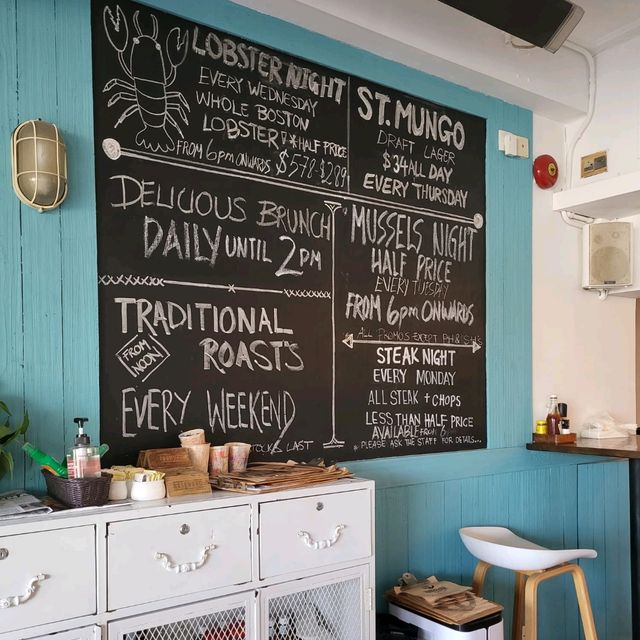 LOBSTER NIGHT
EVERY WEDNESDAY
WHOLE BOSTON
LOBSTER * HALF PRICE
FROM 6pm ONWARDS $578 $289
ST. MUNGO
DRAFT LAGER
$34 ALL DAY
EVERY THURSDAY
DELICIOUS BRUNCH
DAILY UNTIL 2PM
MUSSELS NIGHT
HALF PRICE
EVERY TUESDAY
FROM 6pm ONWARDS
* ALL PROMOS EXCEPT
TRADITIONAL
FROM NOON
ROASTS
EVERY WEEKEND
LAST
STEAK NIGHT
EVERY MONDAY
ALL STEAK + CHOPS
LESS THAN HALF PRICE
AVAILABLE FROM
* PLEASE ASK THE STAFF FOR DETAILS...